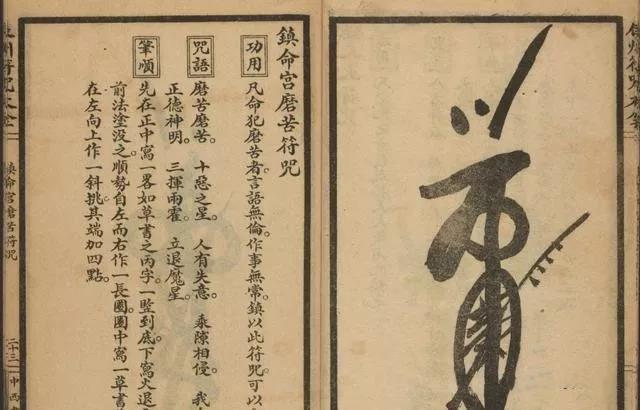 鎮命宮磨苦符咒
功用 凡命犯磨苦者。言語無倫。作事無常。鎮以此符咒可以
咒語 磨苦磨苦。十惡之星。人有失意。乘隙相侵。我
正德神明。三揮雨霍。立退魔星。
筆順 先在正中寫一畧如草書之丙字。一竪到底。下寫火退之
前法塗没之。順勢自左而右作一長圈。圈中寫一草書
在左向上作一斜挑。其端加四點。
鎮命宮磨苦符咒
二十三
中西